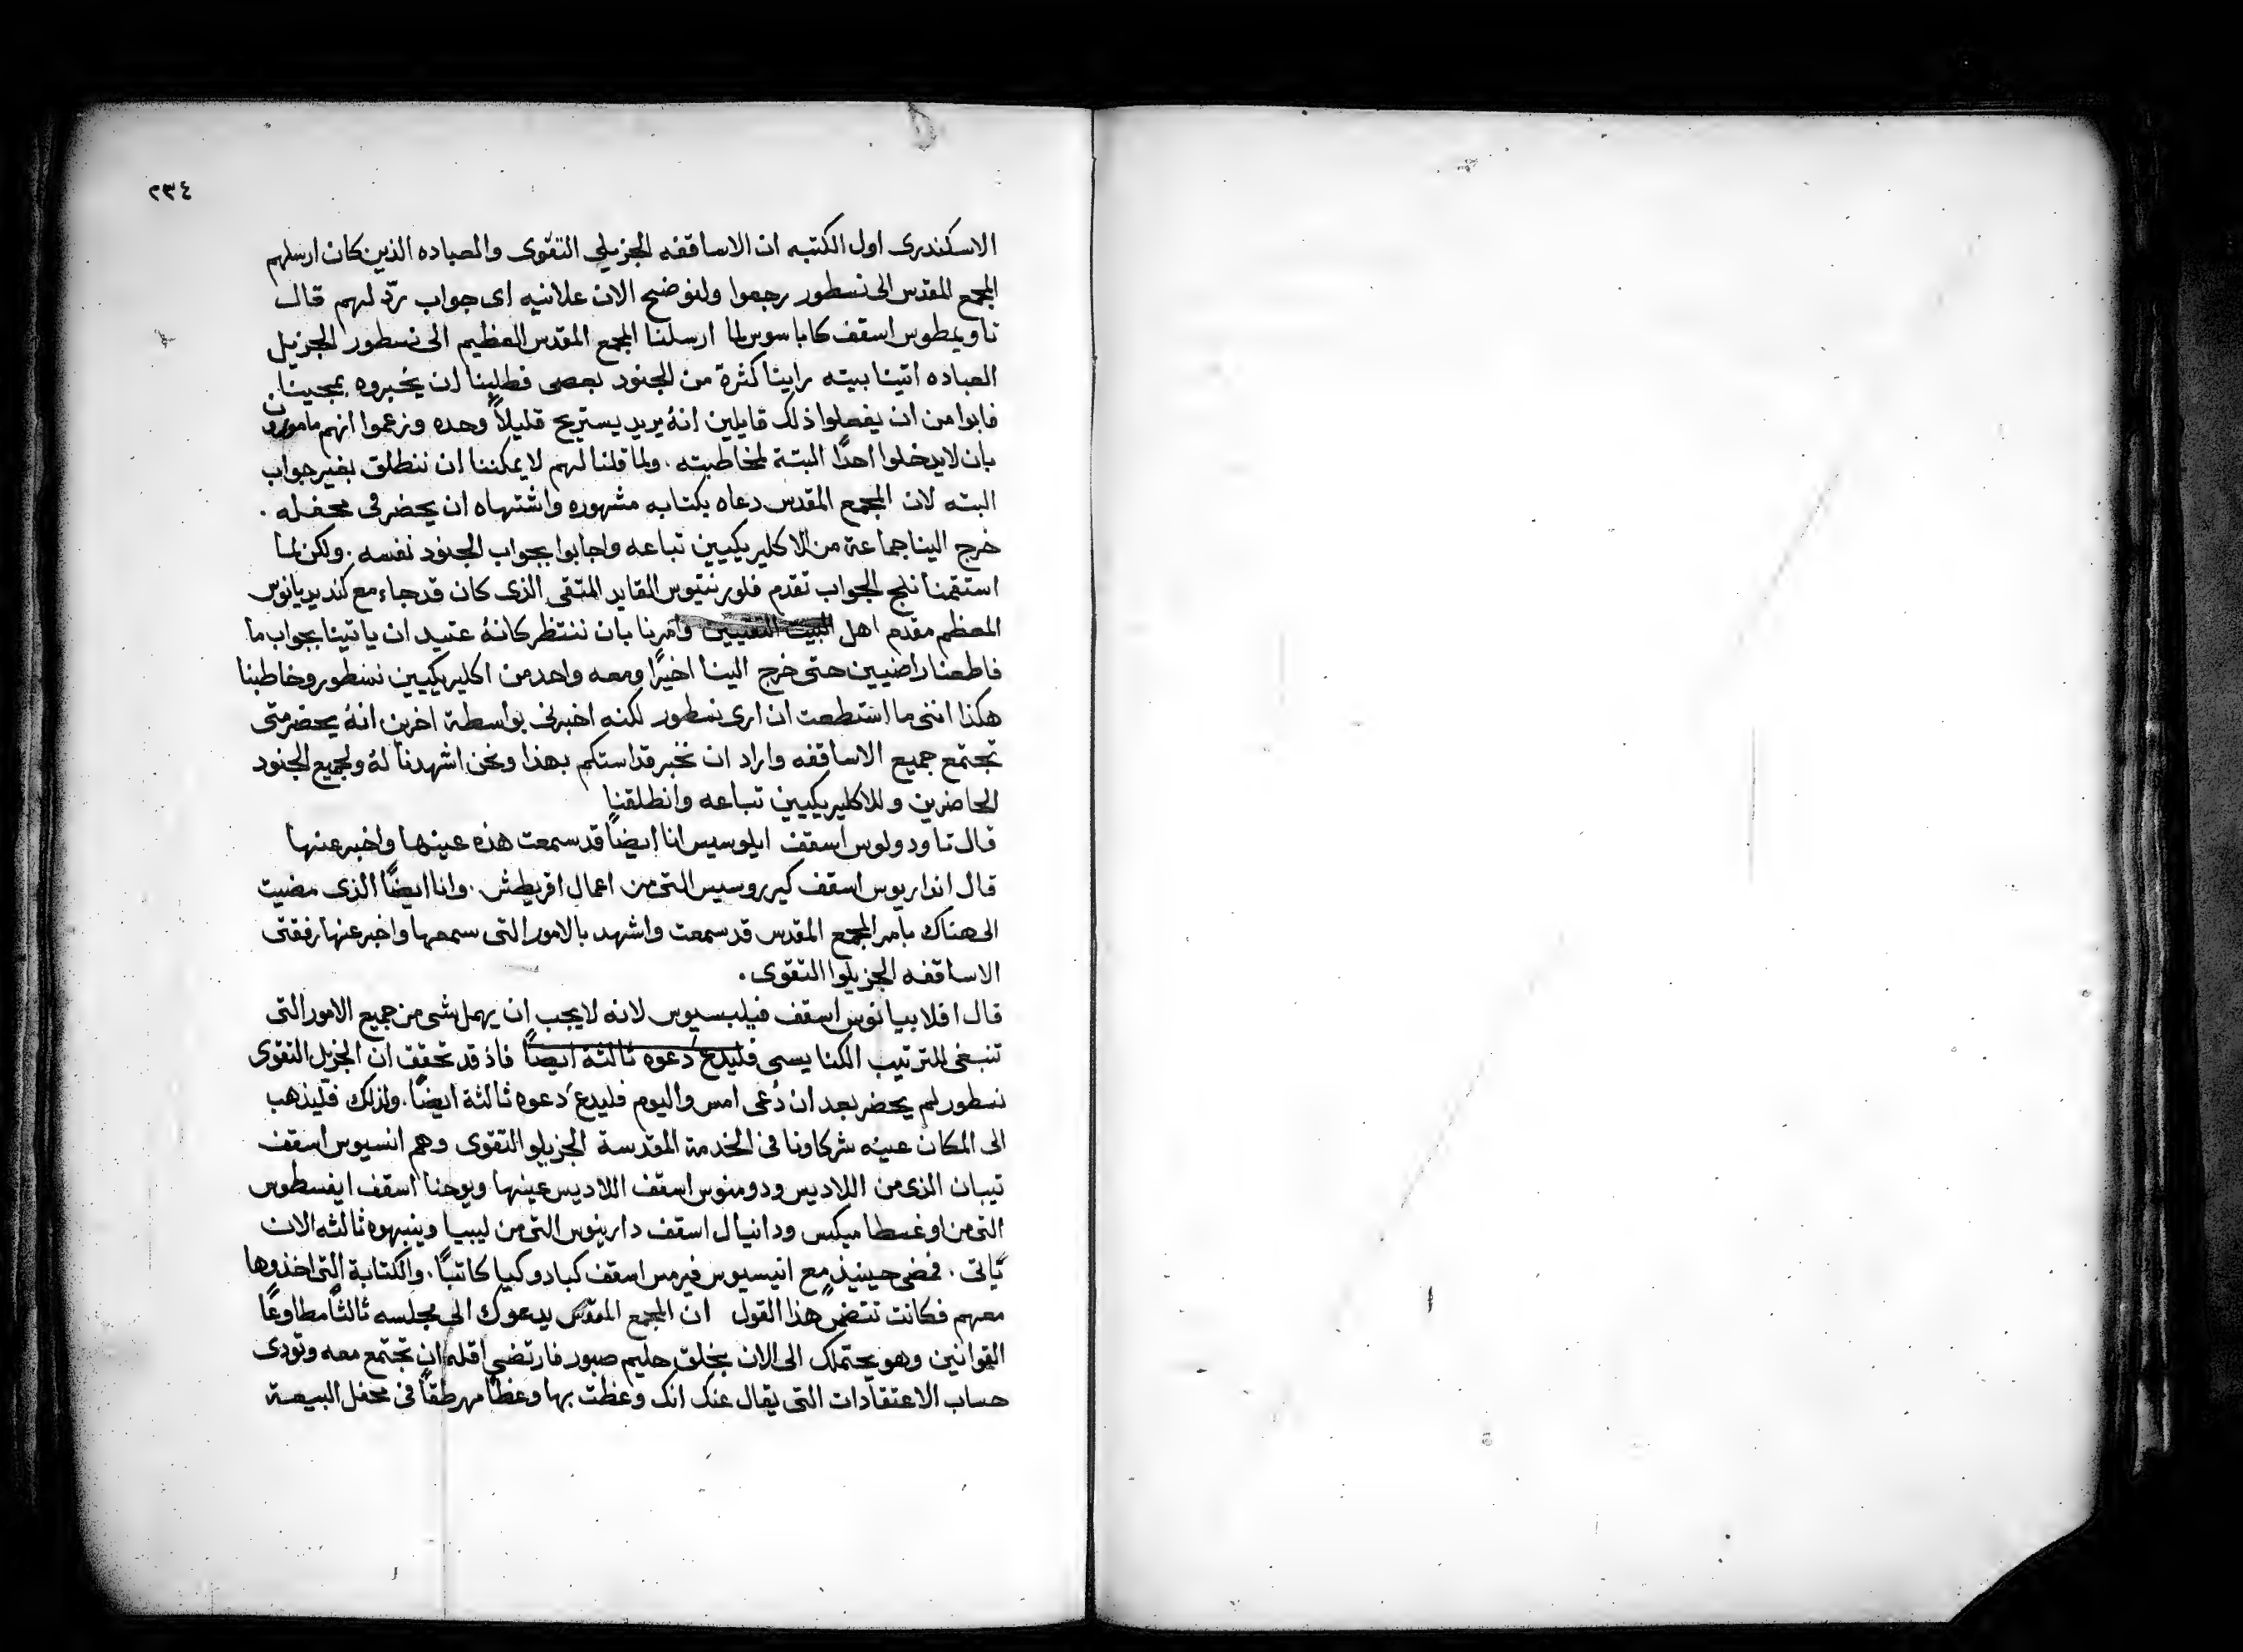 ٢٣٤
الاسكندرى اول الكتبه ان الاساقفه الجزيلى التقوى والعباده الذين كان ارسلهم
المجمع المقدس الى نسطور رجعوا ولنوضح الان علانيه اى جواب ردّ لهم قال
تاويمطوس اسقف كاباسوس لما ارسلنا المجمع المقدس العظيم الى نسطور الجزيل
العباده اتينا بيته راينا كثرة من الجنود بعصى فطلبنا ان يخبروه بمجينا
فابوا من ان يفعلوا ذلك قايلين انهُ يريد يستريح قليلاً وحده وزعموا انهم مامورون
بان لا يدخلوا احدًا البتة لمخاطبته . ولما قلنا لهم لا يمكننا ان ننطلق بغير جواب
البته لان المجمع المقدس دعاه بكتابه مشهوره واشتهاه ان يحضر فى محفله .
خرج الينا جماعة من الاكليريكيين تباعه واجابوا بجواب الجنود نفسه . ولكن لما
استقمنا نلج الجواب تقدم فلورنتيوس القايد المتقى الذى كان قد جاء مع كنديديانوس
المعظم مقدم اهل البيت التقيين وامرنا بان ننتظر كانهُ عتيد ان ياتينا بجواب ما
فاطعنا راضيين حتى خرج الينا اخيرًا ومعه واحد من اكليريكيين نسطور وخاطبنا
هكذا اننى ما استطعت ان ارى نسطور لكنه اخبرنى بواسطة اخرين انهُ يحضر متى
تجتمع جميع الاساقفه واراد ان نخبر قداستكم بهذا ونحن اشهدنا لهُ ولجميع الجنود
الحاضرين وللاكليريكيين تباعه وانطلقنا
قال تاودولوس اسقف ايلوسيس انا ايضاً قد سمعت هذه عينها واخبر عنها
قال انداريوس اسقف كيرروسيس التى من اعمال اقريطش . وانا ايضًا الذى مضيت
الى هناك بامر المجمع المقدس قد سمعت واشهد بالامور التى سمعها واخبر عنها رفقتى
الاساقفه الجزيلوا التقوى .
قال افلابيانوس اسقف فيلبسيوس لانه لا يجب ان يهمل شى من جميع الامور التى
تنبغى للترتيب الكنايسى فليدعَ دعوه ثالثة ايضاً فاذ قد تحقق ان الجزيل التقوى
نسطور لم يحضر بعد ان دُعى امس واليوم فليدعَ دعوه ثالثة ايضًا . ولذلك فليذهب
الى المكان عينه شركاونا فى الخدمة المقدسة الجزيلو التقوى وهم انسيوس اسقف
تيبان الذى من اللاديس ودومنوس اسقف اللاديس عينها ويوحنا اسقف ايفسطوس
التى من اوغسطاميكس ودانيال اسقف دارينوس التى من ليبيا وينبهوه ثالثه الان
ياتى . فمضى حينيذٍ مع انيسيوس فيرمس اسقف كبادوكيا كاتبًا . والكتابة التى اخذوها
معهم فكانت تتضمن هذا القول ان المجمع المقدس يدعوك الى مجلسه ثالثاً مطاوعًا
القوانين وهو يحتملك الى الان بخلق حليم صبور فارتضى اقله ان تجتمع معه وتودى
حساب الاعتقادات التى يقال عنك انك وعظت بها وعظًا مهرطقاً فى محفل البيعة